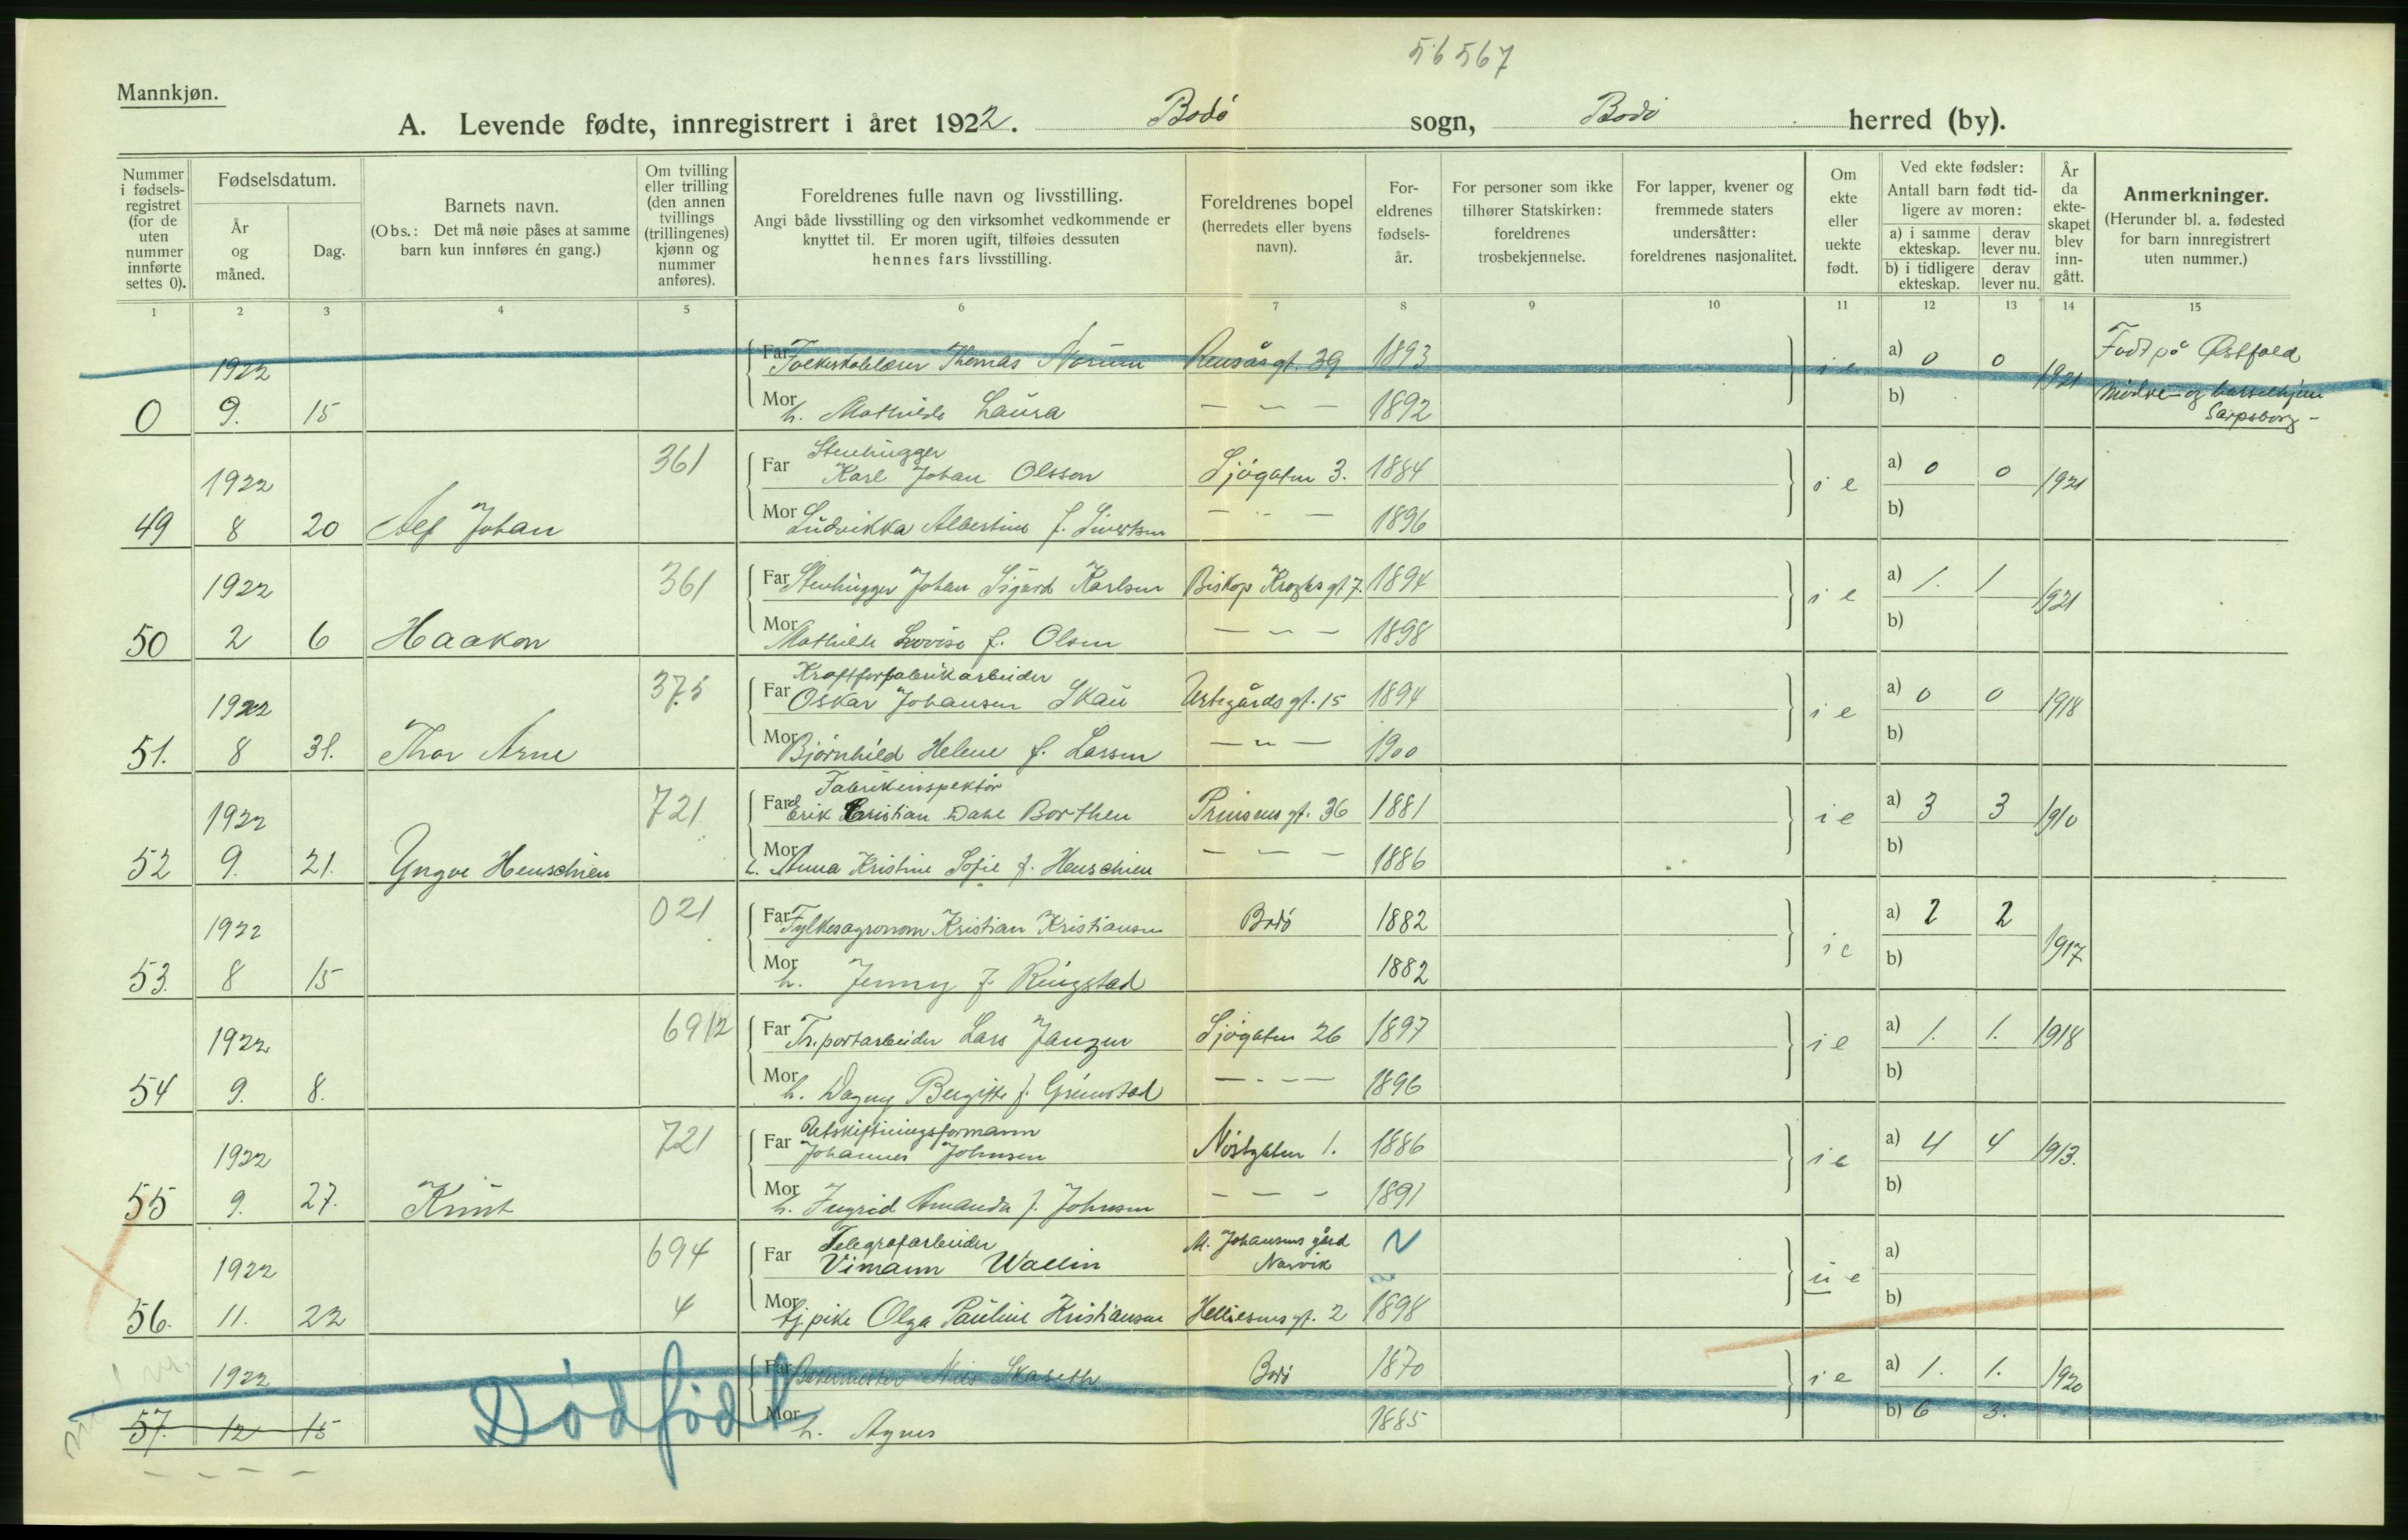 56567
Mannkjøn.
A. Levende fødte, innregistrert i året 1922. Bodø sogn, Bodø herred (by).
Nummer i fødselsregistret (for de uten nummer innførte settes 0).
Fødselsdatum.
År og måned.
Dag.
Barnets navn.
(Obs.: Det må nøie påses at samme barn kun innføres én gang.)
Om tvilling eller trilling (den annen tvillings (trillingenes) kjønn og nummer anføres).
Foreldrenes fulle navn og livsstilling.
Angi både livsstilling og den virksomhet vedkommende er knyttet til. Er moren ugift, tilføies dessuten hennes fars livsstilling.
Foreldrenes bopel (herredets eller byens navn).
Foreldrenes fødselsår.
For personer som ikke tilhører Statskirken: foreldrenes trosbekjennelse.
For lapper, kvener og fremmede staters undersåtter: foreldrenes nasjonalitet.
Om ekte eller uekte født.
Ved ekte fødsler:
Antall barn født tidligere av moren:
a) i samme ekteskap. derav lever nu.
b) i tidligere ekteskap. derav lever nu.
År da ekteskapet blev inngått.
Anmerkninger.
(Herunder bl. a. fødested for barn innregistrert uten nummer.)
1 2 3 4 5 6 7 8 9 10 11 12 13 14 15
1922 Far Folkeskolelærer Thomas Norum Rensåsgt. 39 1893 i e a) 0 0 1921 Født på Østfold
0 9. 15 Mor h. Mathilde Laura – " – 1892 b) Mødre- og barselhjem Sarpsborg –
1922 361 Far Stenhugger Karl Johan Olsson Sjøgaten 3. 1884 i e a) 0 0 1921
49 8 20 Alf Johan Mor Ludvikka Albertine f. Sivertsen – " – 1896 b)
1922 361 Far Stenhugger Johan Sigurd Karlsen Biskop Kroghs gt 7. 1894 i e a) 1. 1 1921
50 2 6 Haakon Mor Mathilde Lovise f. Olsen – " – 1898 b)
1922 375 Far Kraftforfabrikarbeider Oskar Johansen Skau Urtegårds gt. 15 1894 i e a) 0 0 1918
51. 8 31. Thor Arne Mor Bjørnhild Helene f. Larsen – " – 1900 b)
1922 721 Far Fabrikinspektør Erik Cristian Dahl Borthen Prinsens gt. 36 1881 i e a) 3 3 1910
52 9. 21. Yngve Henschien Mor h. Anna Kristine Sofie f. Henschien – – – 1886 b)
1922 021 Far Fylkesagronom Kristian Kristiansen Bodø 1882 i e a) 2 2 1917
53. 8 15 Mor h. Jenny f. Ringstad 1882 b)
1922 6912 Far Tr.portarbeider Lars Janzen Sjøgaten 26 1897 i e a) 1. 1. 1918
54 9. 8. Mor h. Dagny Bergitte f. Grimstad – " – 1896 b)
1922 721 Far Utskiftningsformann Johannes Johnsen Nøstgaten 1. 1886 i e a) 4 4 1913.
55 9. 27. Knut Mor h. Ingrid Amanda f. Johnsen – – – 1891 b)
1922 694 Far Telegrafarbeider Vimann Wallin M. Johansens gård Narvik N u e a)
56. 11. 22 4 Mor tj.pike Olga Pauline Kristiansen Hellesens gt. 2 1898 b)
1922 Far Nils Skaseth Bodø 1870 i e a) 1. 1. 1920
57. 12 15 Dødfødt Mor h. Agnes 1885 b) 6 3.
– – – –